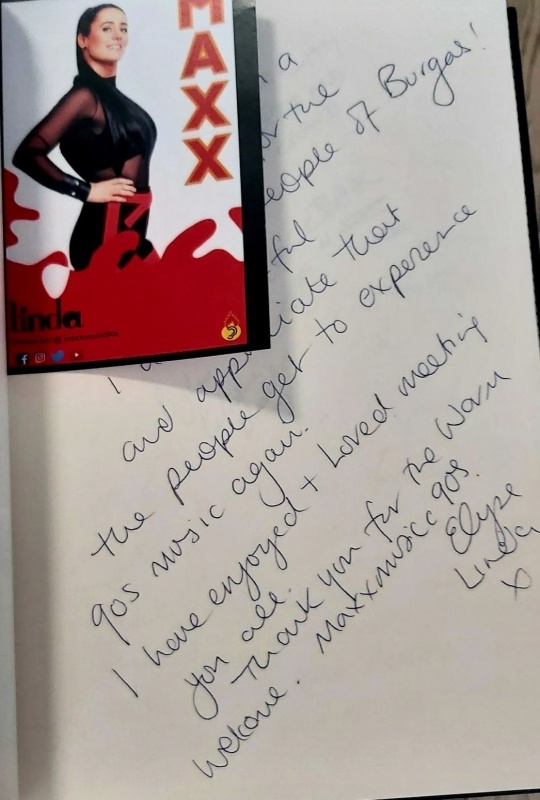 MAXX
linda
a
for the
People of Burgas!
ful
I
and appreciate that
the people get to experience
90s music again.
I have enjoyed + Loved meeting
you all.
Thank you for the warm
welcome. Maxxmusicc90s.
Elyse
Linda
X